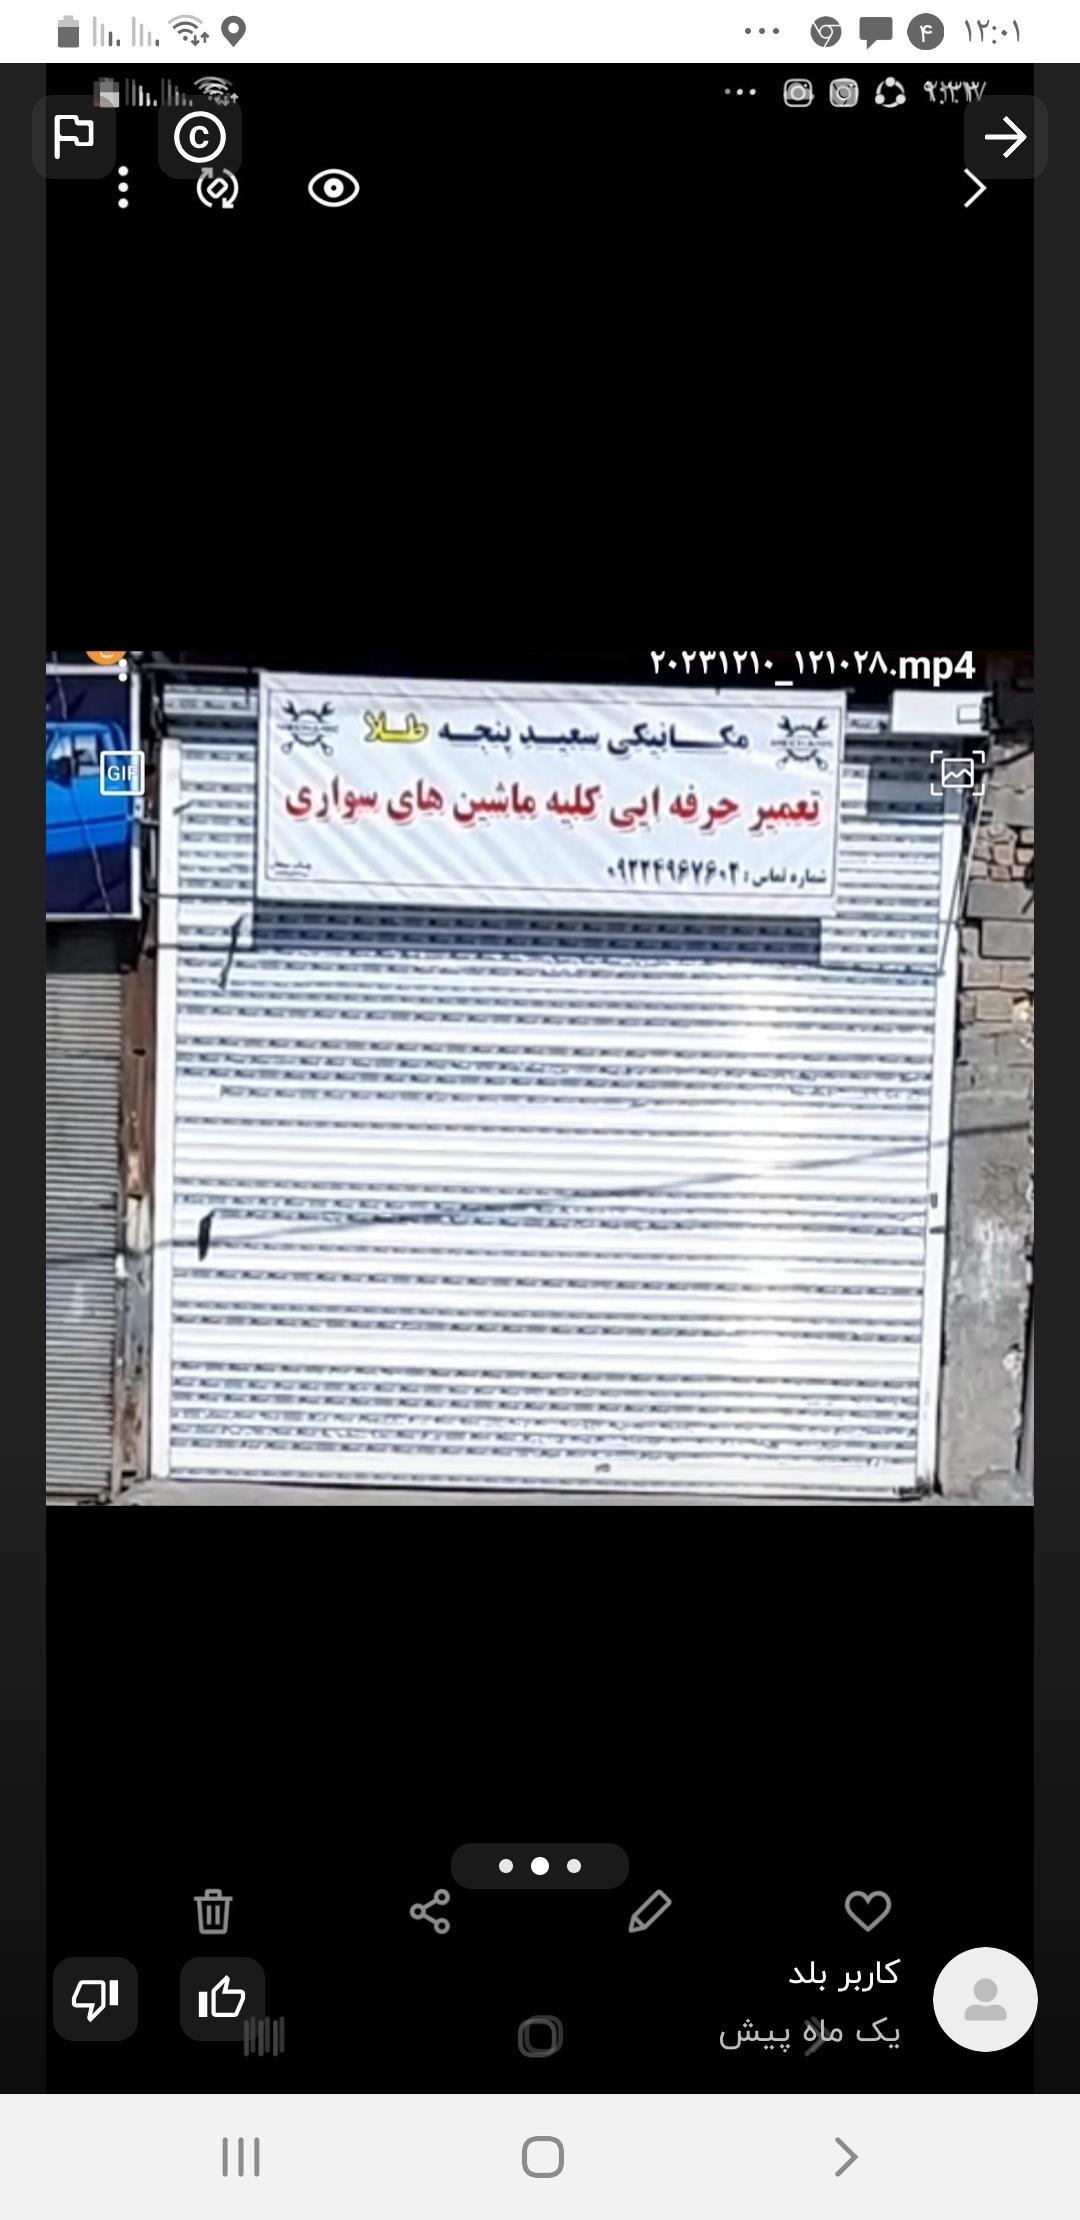 ۱۲:۰۱
۴
۲۰۲۳۱۲۱۰_۱۲۱۰۲۸.mp4
GIF
مکانیکی سعید پنجه طلا
تعمیر حرفه ایی کلیه ماشین های سواری
شماره تماس: ۰۹۲۲۴۹۶۷۶۰۲
کاربر بلد
یک ماه پیش